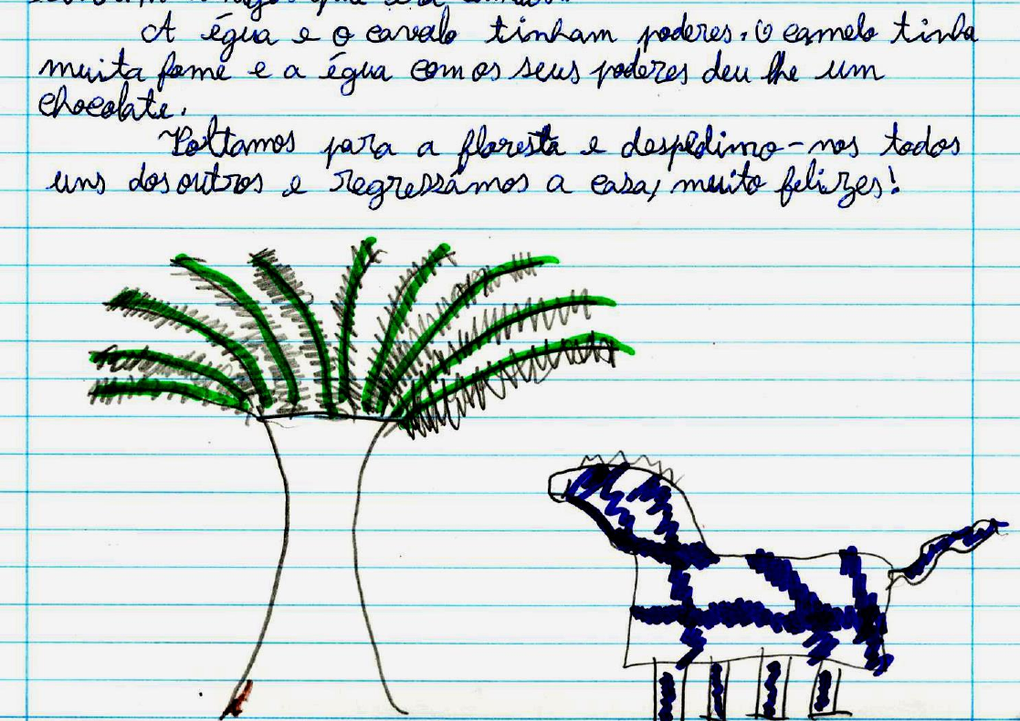 A égua e o cavalo tinham poderes. O camelo tinha
muita fome e a égua com os seus poderes deu lhe um
chocolate.
Voltamos para a floresta e despedimo-nos todos
uns dos outros e regressámos a casa, muito felizes!